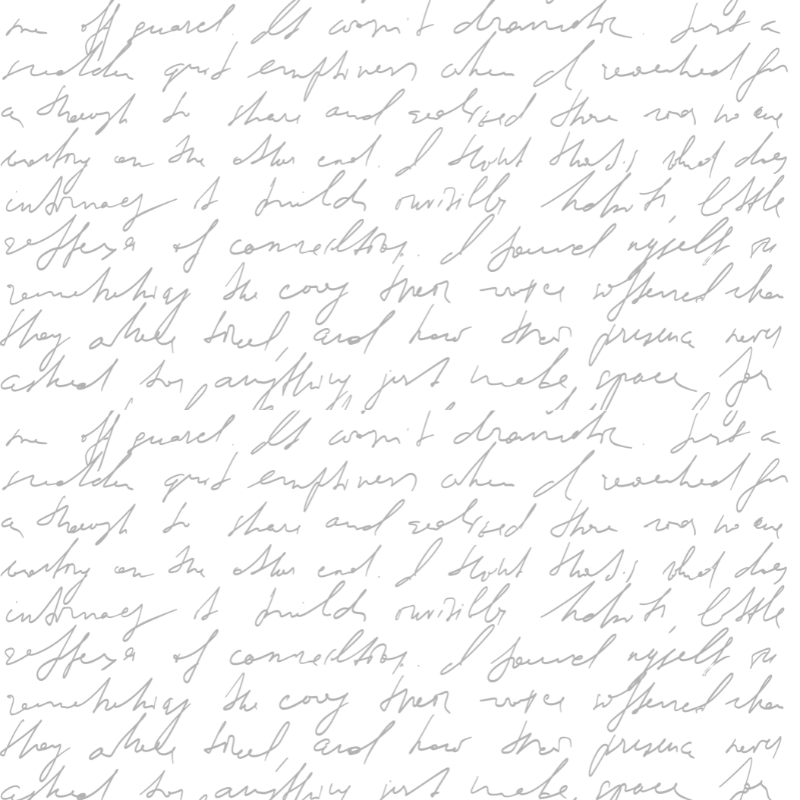 me off guard. It wasn't dramatic. Just a
sudden quiet emptiness when I reached for
a though to share and realized there was no one
waiting on the other end. I think that's what does
intimacy it builds invisibly habits, little
of connection. I found myself
remembering the way their voice softened when
they were tired, and how their presence never
asked for anything just made space for
me off guard. It wasn't dramatic. Just a
sudden quiet emptiness when I reached for
a though to share and realized there was no one
waiting on the other end. I think that's what does
intimacy it builds invisibly habits, little
of connection. I found myself
remembering the way their voice softened when
they were tired, and how their presence never
asked for anything just made space for